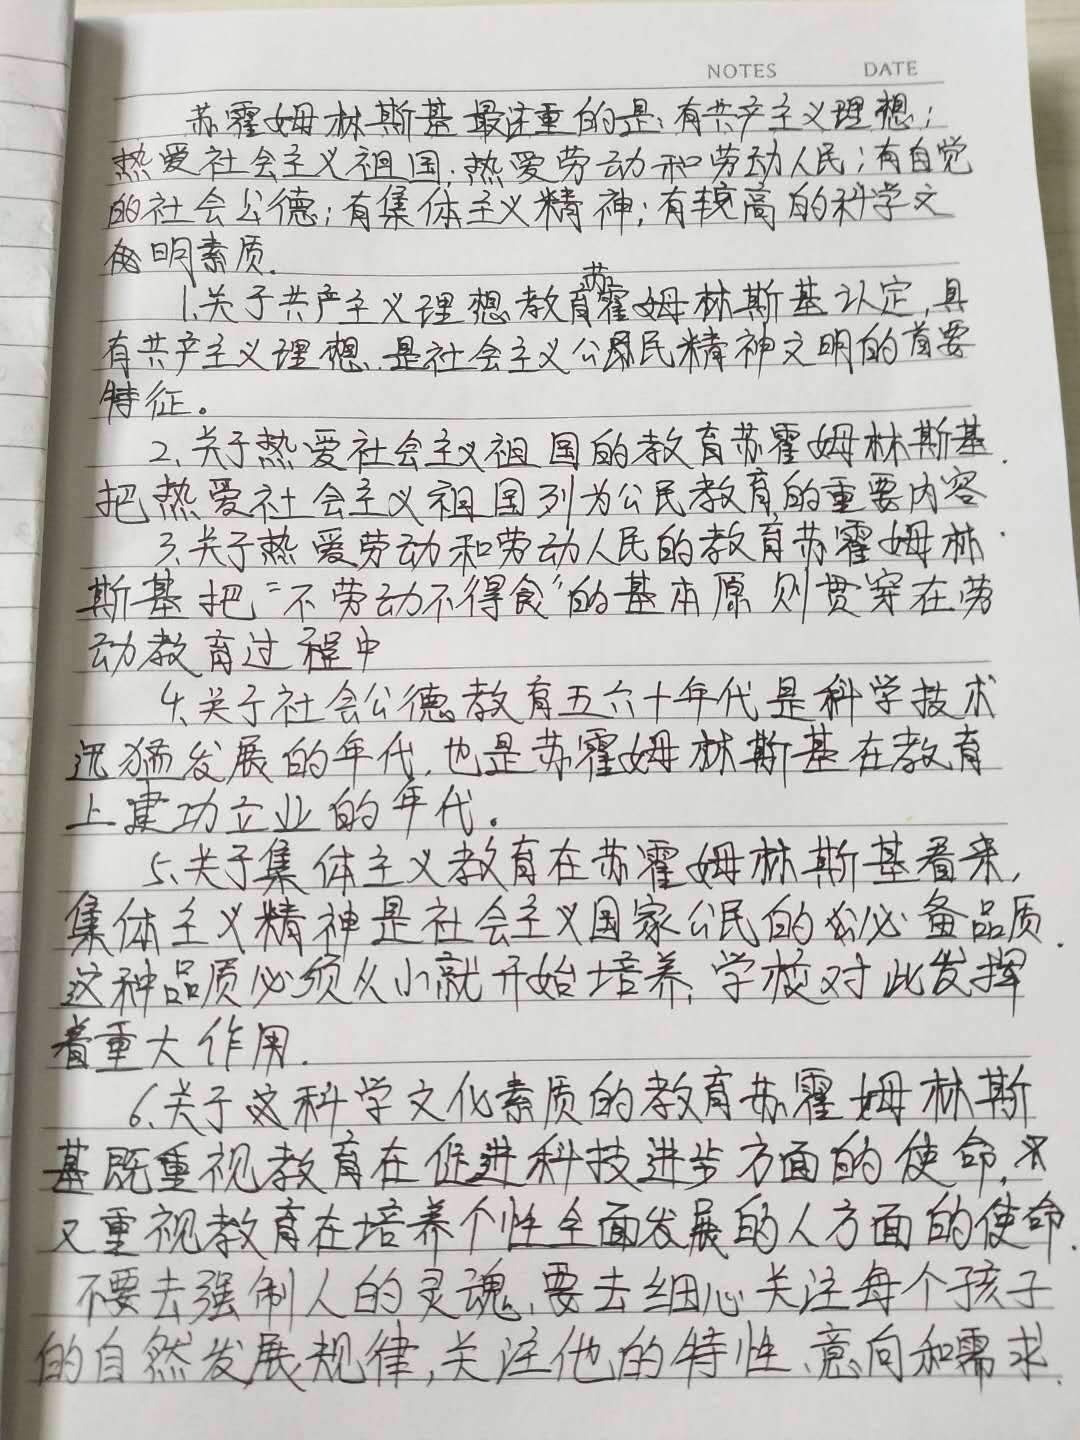 NOTES DATE
苏霍姆林斯基最注重的是:有共产主义理想;
热爱社会主义祖国;热爱劳动和劳动人民;有自觉
的社会公德;有集体主义精神;有较高的科学文
明素质.
1.关于共产主义理想教育苏霍姆林斯基认定,具
有共产主义理想、是社会主义公民精神文明的首要
特征。
2、关于热爱社会主义祖国的教育苏霍姆林斯基.
把热爱社会主义祖国列为公民教育的重要内容
3、关于热爱劳动和劳动人民的教育苏霍姆林
斯基把“不劳动不得食”的基本原则贯穿在劳
动教育过程中
4、关于社会公德教育五六十年代是科学技术
迅猛发展的年代,也是苏霍姆林斯基在教育
上建功立业的年代。
5、关于集体主义教育在苏霍姆林斯基看来,
集体主义精神是社会主义国家公民的必备品质.
这种品质必须从小就开始培养,学校对此发挥
着重大作用.
6、关于这科学文化素质的教育苏霍姆林斯
基既重视教育在促进科技进步方面的使命,
又重视教育在培养个性全面发展的人方面的使命.
不要去强制人的灵魂,要去细心关注每个孩子
的自然发展规律,关注他的特性、意向和需求.